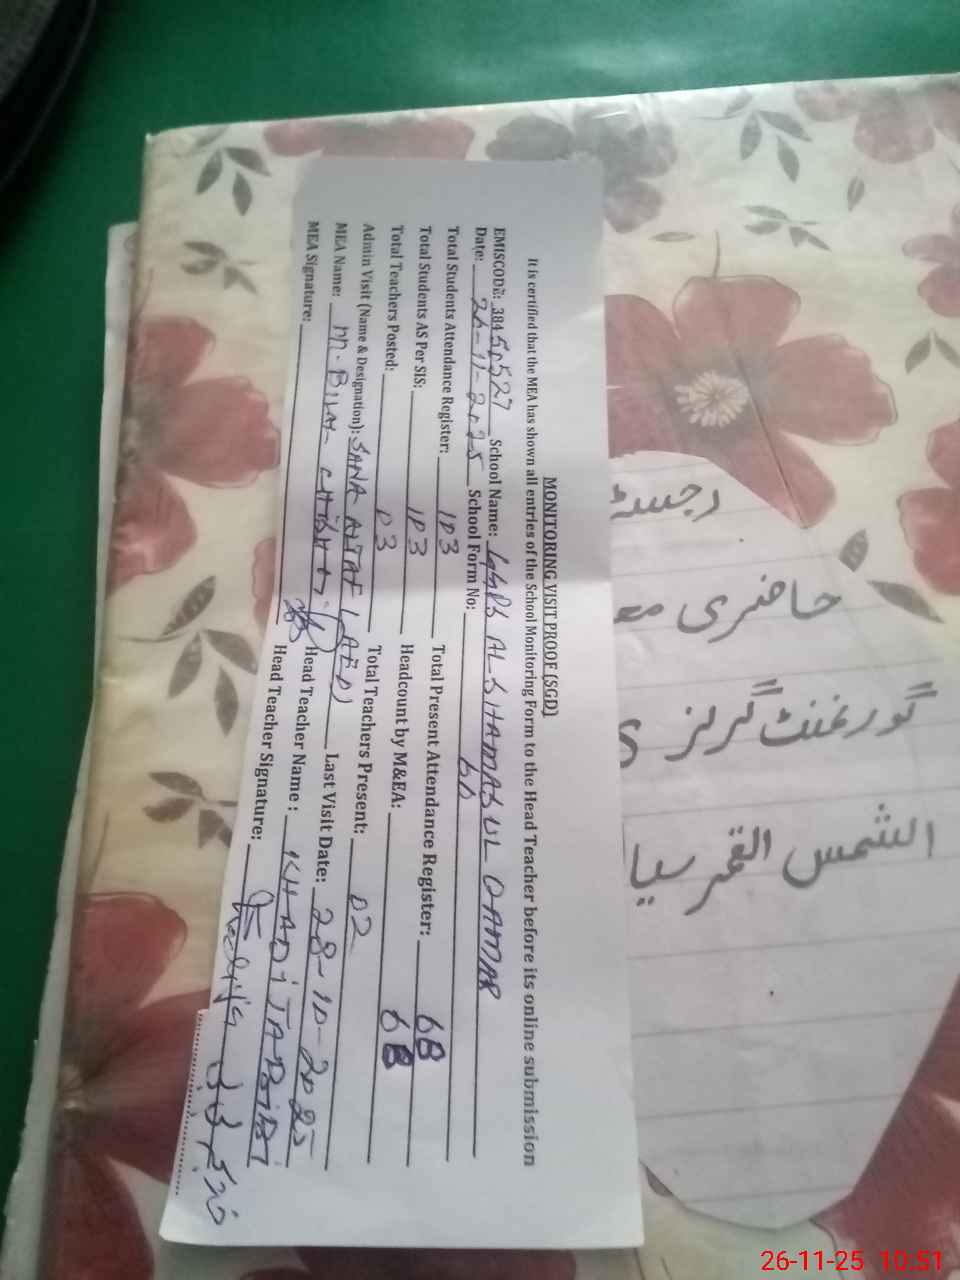 MONITORING VISIT PROOF (SGD)
It is certified that the MEA has shown all entries of the School Monitoring Form to the Head Teacher before its online submission
EMISCODE: 38450527 School Name: GGPS AL SHAMASUL QAMAR
Date: 26-11-2025 School Form No: 60
Total Students Attendance Register: 103 Total Present Attendance Register: 68
Total Students AS Per SIS: 103 Headcount by M&EA: 68
Total Teachers Posted: 03 Total Teachers Present: 02
Admin Visit (Name & Designation): SANA ALTAF (AEO) Last Visit Date: 28-10-2025
MEA Name: M. BILAL CHISHTI Head Teacher Name: KHADIJA BIBI
MEA Signature: Head Teacher Signature: Khadija
رجسٹر
حاضری
گورنمنٹ گرلز
الشمس القمر
26-11-25 10:51